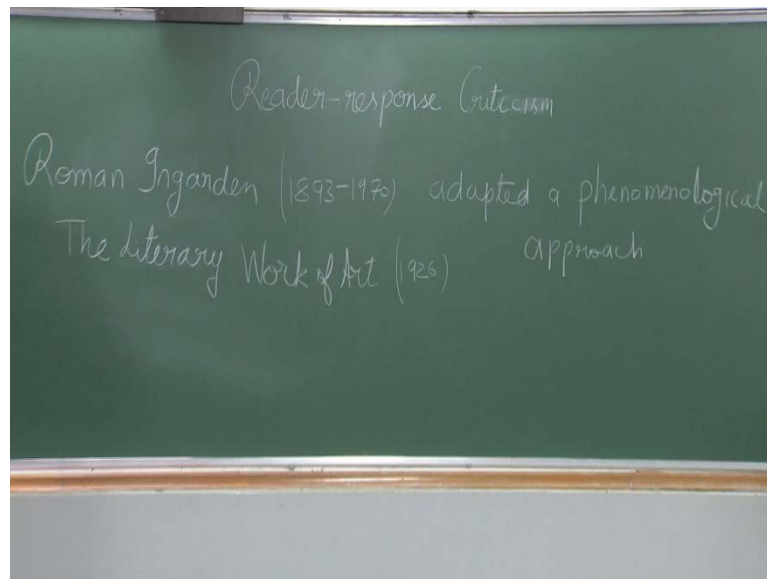 Reader-response Criticism
Roman Ingarden (1893-1970) adapted a phenomenological
approach
The Literary Work of Art (1926)